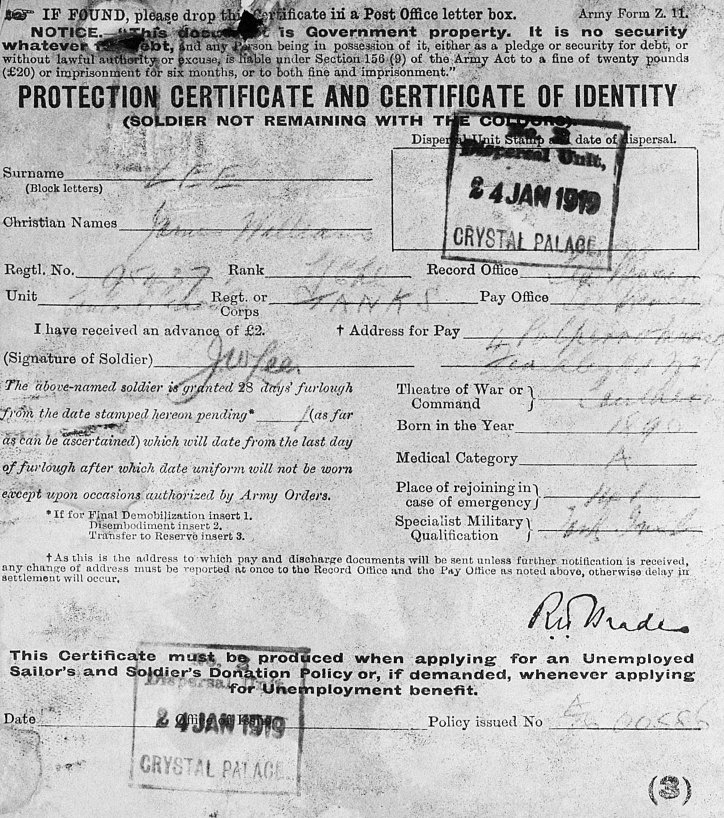 ☞ IF FOUND, please drop this Certificate in a Post Office letter box. Army Form Z. 11.
NOTICE.—"This document is Government property. It is no security
whatever for debt, and any Person being in possession of it, either as a pledge or security for debt, or
without lawful authority or excuse, is liable under Section 156 (9) of the Army Act to a fine of twenty pounds
(£20) or imprisonment for six months, or to both fine and imprisonment."
PROTECTION CERTIFICATE AND CERTIFICATE OF IDENTITY
(SOLDIER NOT REMAINING WITH THE COLOURS)
Dispersal Unit Stamp and date of dispersal.
No. 2
Dispersal Unit,
24 JAN 1919
CRYSTAL PALACE.
Surname LEE
(Block letters)
Christian Names James William
Regtl. No. 95437 Rank Record Office
Unit Regt. or Corps TANKS Pay Office
I have received an advance of £2. † Address for Pay 4
(Signature of Soldier) JW Lee.
The above-named soldier is granted 28 days' furlough
from the date stamped hereon pending* (as far
as can be ascertained) which will date from the last day
of furlough after which date uniform will not be worn
except upon occasions authorized by Army Orders.
* If for Final Demobilization insert 1.
Disembodiment insert 2.
Transfer to Reserve insert 3.
Theatre of War or Command
Born in the Year 1890
Medical Category A
Place of rejoining in case of emergency
Specialist Military Qualification
† As this is the address to which pay and discharge documents will be sent unless further notification is received,
any change of address must be reported at once to the Record Office and the Pay Office as noted above, otherwise delay in
settlement will occur.
This Certificate must be produced when applying for an Unemployed
Sailor's and Soldier's Donation Policy or, if demanded, whenever applying
for Unemployment benefit.
Dispersal Unit
Date Office of Issue Policy issued No
24 JAN 1919
CRYSTAL PALACE
(3)